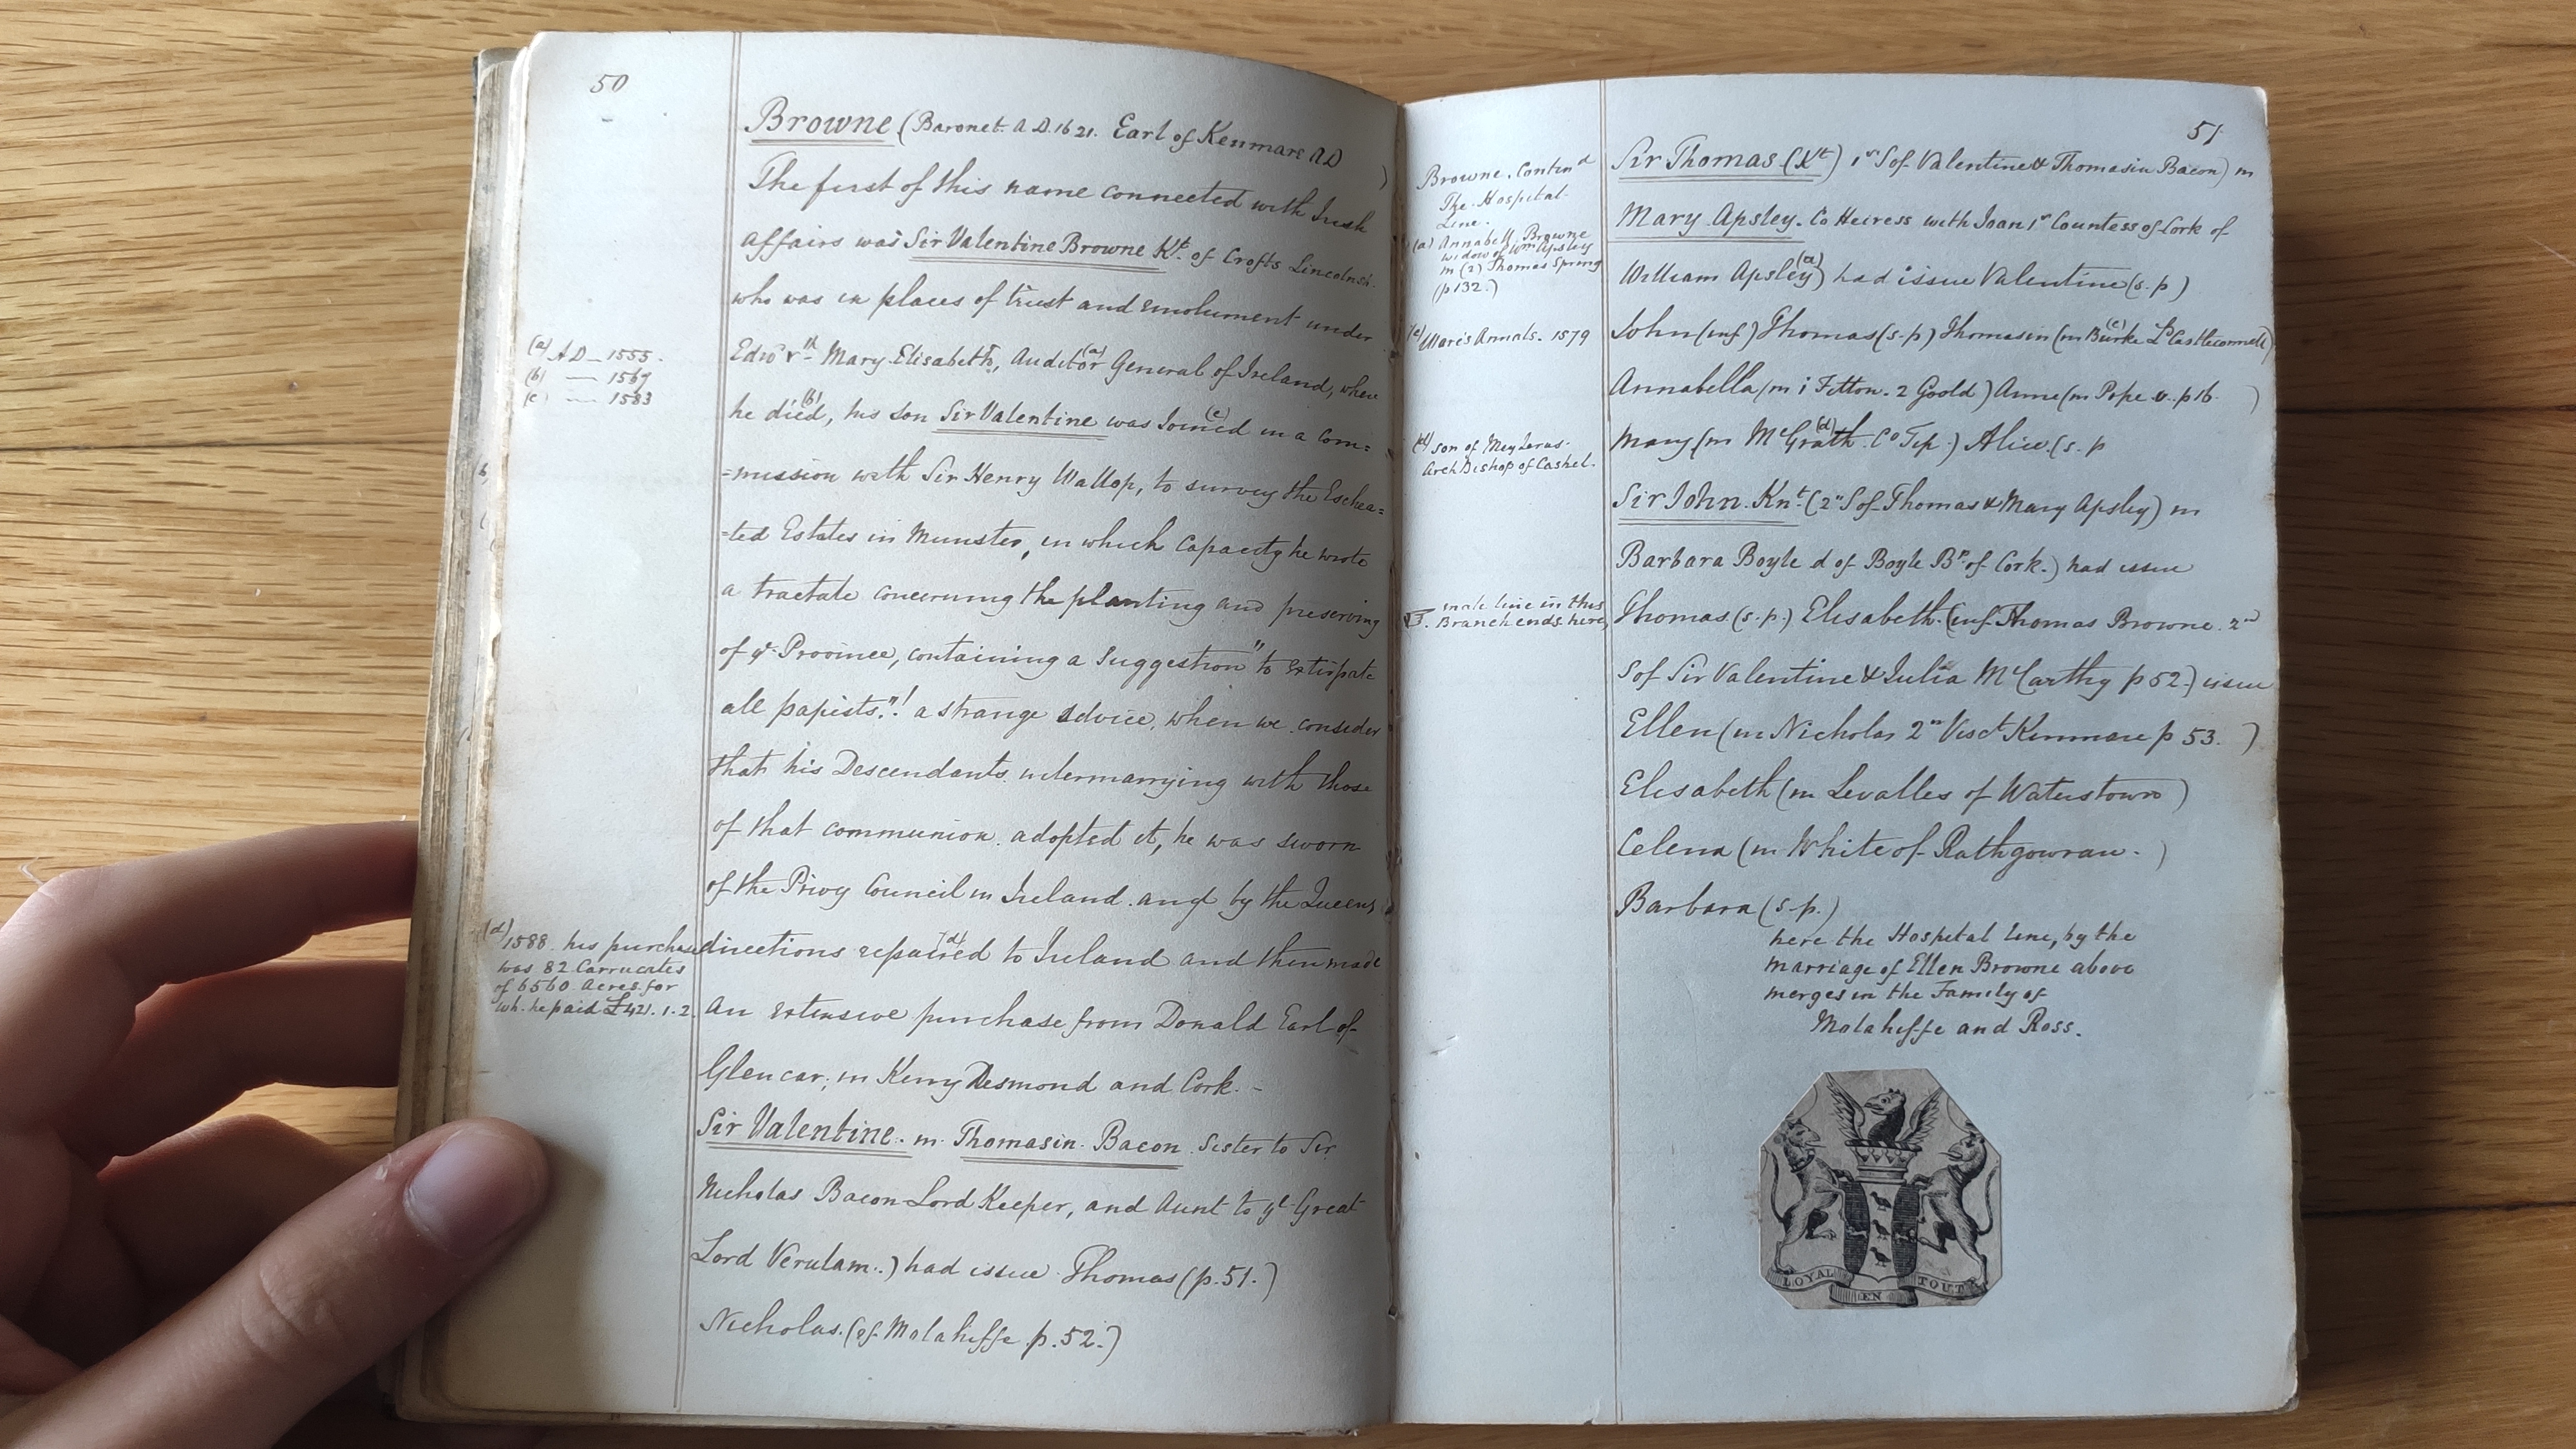 50
Browne (Baronet. A.D. 1621. Earl of Kenmare AD )
The first of this name connected with Irish
affairs was Sir Valentine Browne Kt. of Crofts Lincolnsh.
who was in places of trust and emolument under
Edwd. Mary Elisabeth, Auditor (a) General of Ireland, where
(a) AD — 1555.
(b) — 1567
(c) — 1583
he died (b), his son Sir Valentine was Joined (c) in a Com=
=mission with Sir Henry Wallop, to survey the Eschea=
=ted Estates in Munster, in which Capacity he wrote
a tractate concerning the planting and preserving
of yt. Province, containing a Suggestion "to extirpate
all papists."! a strange advice, when we consider
that his Descendants intermarrying with those
of that communion adopted it, he was sworn
of the Privy Council in Ireland. and by the Queens
directions repaired (d) to Ireland and then made
(d) 1588. his purchase
was 82 Carrucates
of 6560 Acres for
wh. he paid £421. 1. 2.
an extensive purchase from Donald Earl of
Glencar; in Kerry Desmond and Cork. -
Sir Valentine. m. Thomasin Bacon. Sister to Sir
Nicholas Bacon Lord Keeper, and Aunt to yt Great
Lord Verulam.) had issue Thomas (p. 51.)
Nicholas. (of Molahiffe p. 52.)
51
Browne. Contind
The Hospital
Line.
(a) Annabell Browne
widow of Wm Apsley
m (2) Thomas Spring
(p 132.)
Sir Thomas (Kt) 1st S of Valentine & Thomasin Bacon) m
Mary Apsley. Co Heiress with Joan 1st Countess of Cork of
William Apsley (a)) had issue Valentine (s. p)
John (inf) Thomas (s. p) Thomasin (m Burke (c) Ld Castleconnell)
(c) Ware's Annals. 1579
Annabella (m 1 Fitton. 2 Goold) Anne (m Pope v. p 16 )
Mary (m McGrath (d). Co Tip.) Alice. (s. p
(d) son of Meylerus
ArchBishop of Cashel.
Sir John. Knt. (2n S of Thomas & Mary Apsley) m
Barbara Boyle d of Boyle Bp. of Cork.) had issue
male line in this
Branch ends here,
Thomas (s. p.) Elisabeth. (inf Thomas Browne. 2nd
S of Sir Valentine & Julia McCarthy p 52.) issue
Ellen (m Nicholas 2n Visct Kenmare p 53. )
Elisabeth (m Levalles of Waterstown)
Celena (m White of Rathgowran. )
Barbara (s. p.)
here the Hospital line, by the
marriage of Ellen Browne above
merges in the Family of
Molahiffe and Ross.
LOYAL EN TOUT